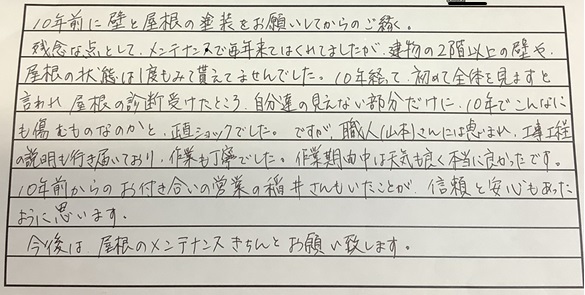 10年前に壁と屋根の塗装をお願いしてからのご縁。
残念な点として、メンテナンスで毎年来てはくれてましたが、建物の2階以上の壁や、
屋根の状態は1度もみて貰えてませんでした。10年経って、初めて全体を見ますと
言われ 屋根の診断受けたところ、自分達の見えない部分だけに、10年でこんなに
も傷むものなのかと、正直ショックでした。ですが、職人(山本)さんには恵まれ、工事工程
の説明も行き届いており、作業も丁寧でした。作業期間中は天気も良く本当に良かったです。
10年前からのお付き合いの営業の稲井さんもいたことが、信頼と安心もあった
ように思います。
今後は 屋根のメンテナンスきちんとお願い致します。